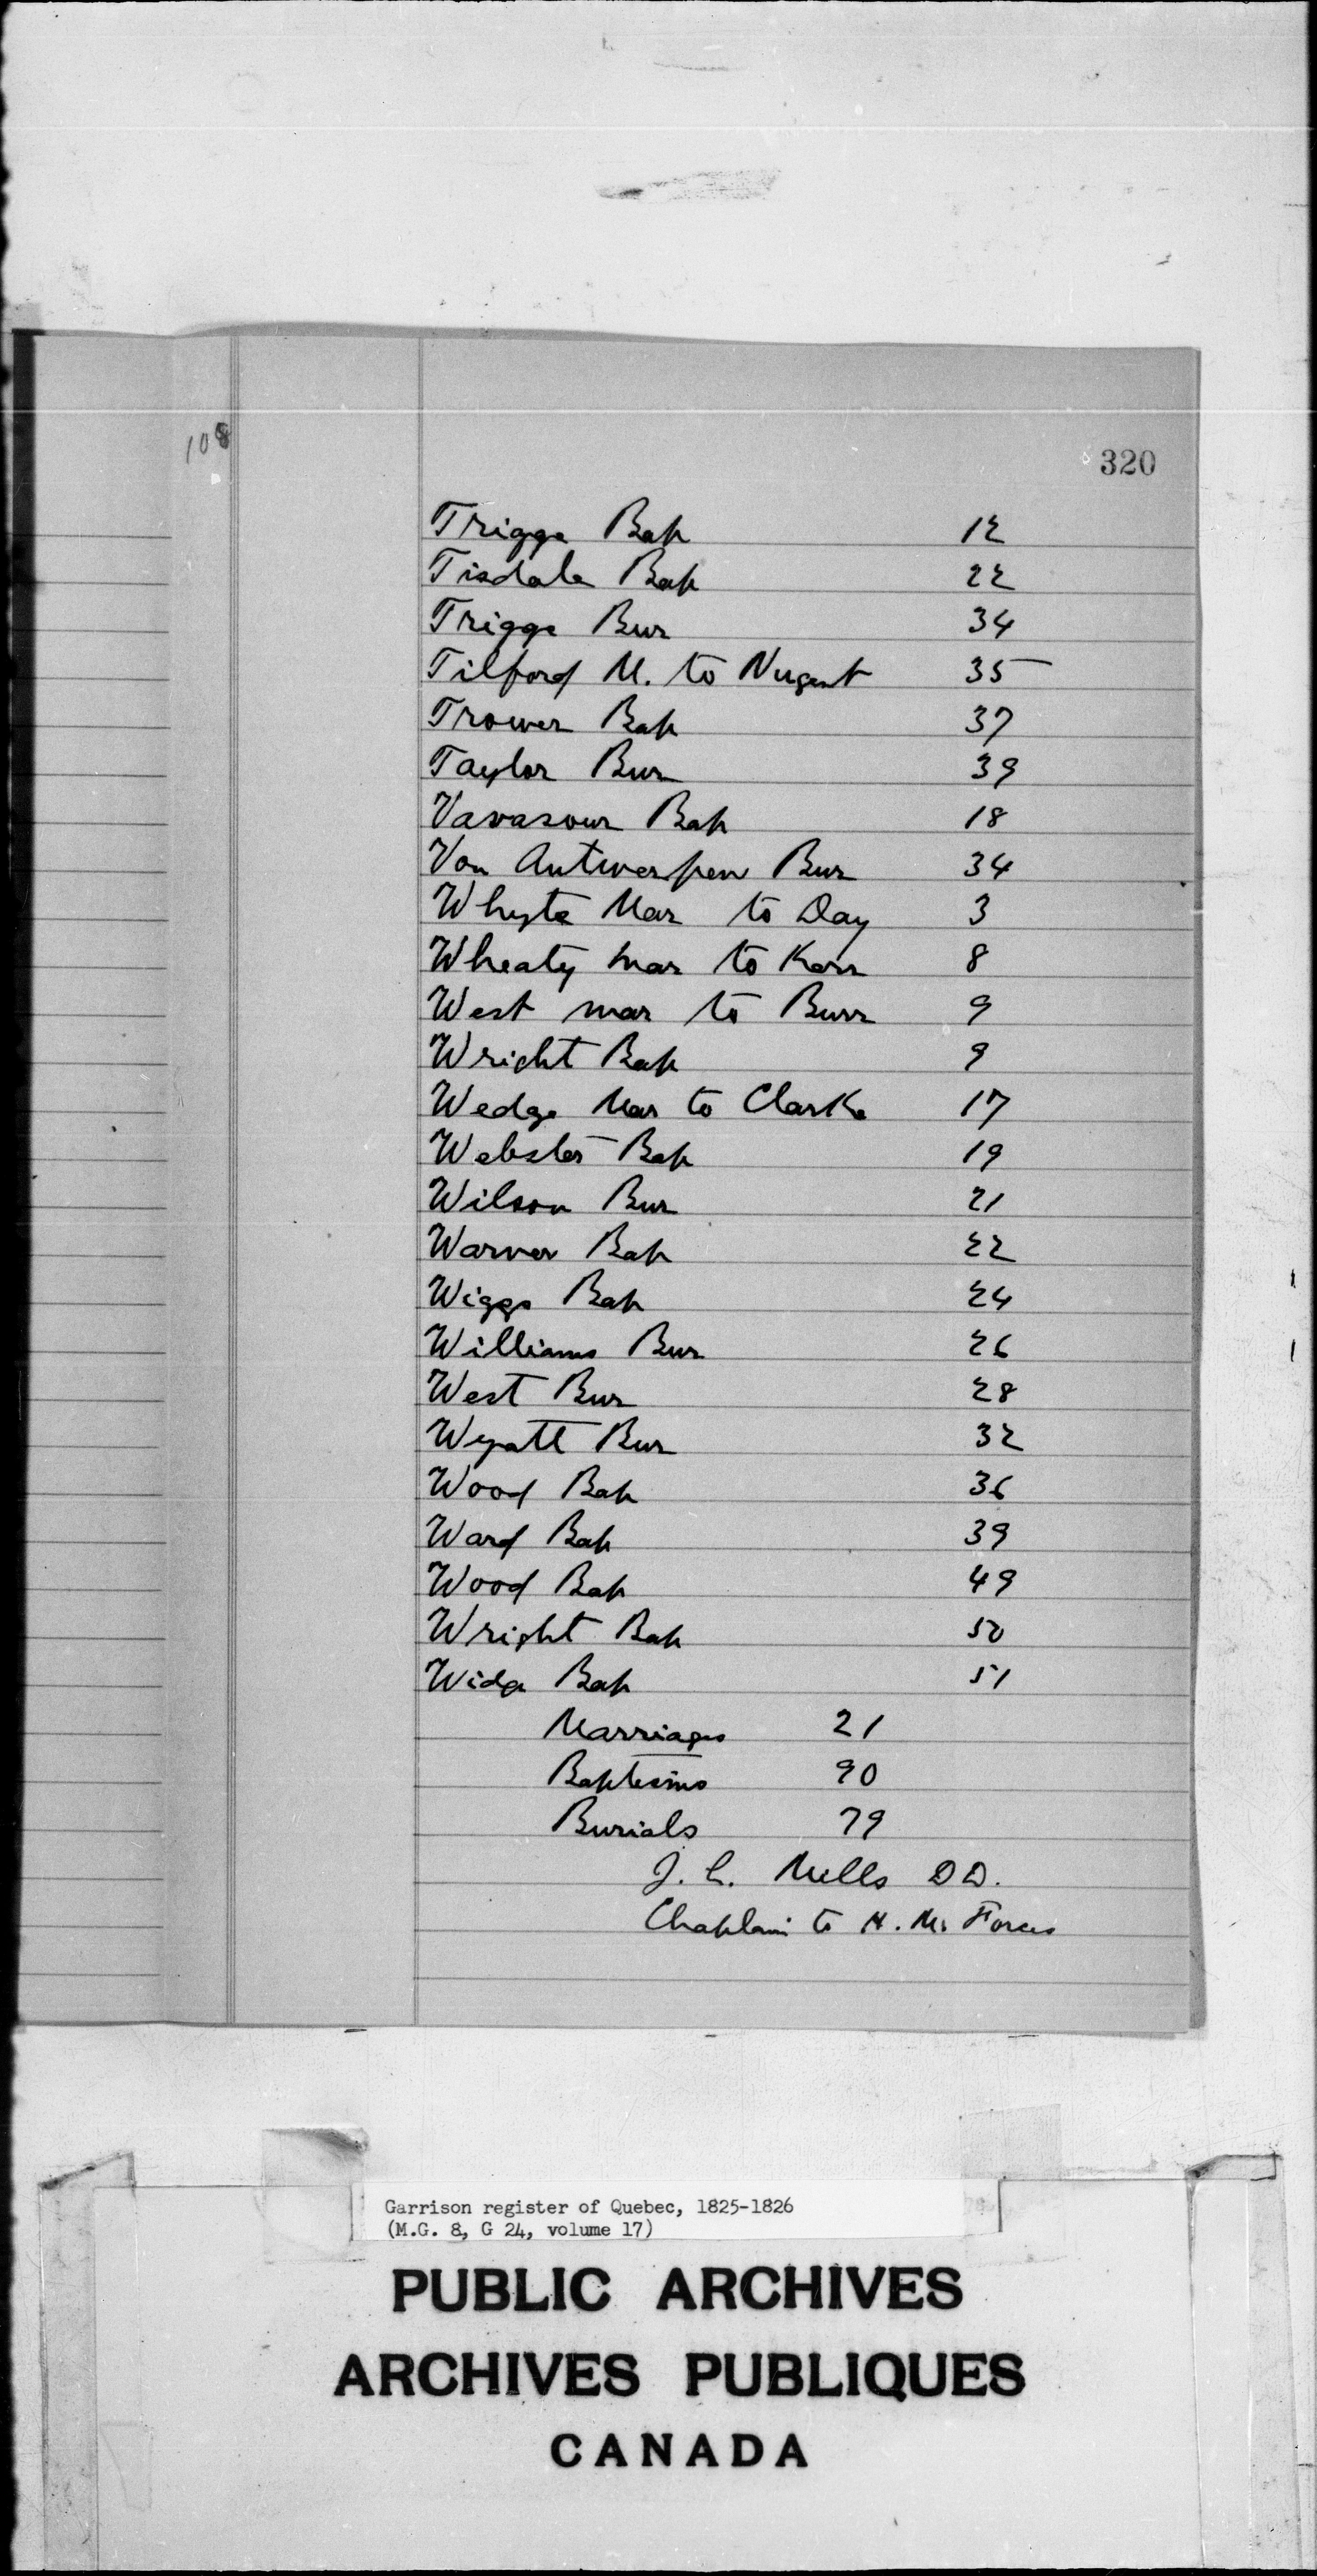 108
320
Trigge Bap 12
Tisdale Bap 22
Trigge Bur 34
Tilford M. to Nugent 35
Trower Bap 37
Taylor Bur 39
Vavasour Bap 18
Von Antwerpen Bur 34
Whyte Mar to Day 3
Wheaty Mar to Kerr 8
West mar to Burr 9
Wright Bap 9
Wedge Mar to Clarke 17
Webster Bap 19
Wilson Bur 21
Warner Bap 22
Wiggs Bap 24
Williams Bur 26
West Bur 28
Wyatt Bur 32
Wood Bap 36
Ward Bap 39
Wood Bap 49
Wright Bap 50
Bap 51
Marriages 21
Baptisms 90
Burials 79
J. L. Mills D D.
Chaplain to H. M. Forces
Garrison register of Quebec, 1825-1826
(M.G. 8, G 24, volume 17)
PUBLIC ARCHIVES
ARCHIVES PUBLIQUES
CANADA